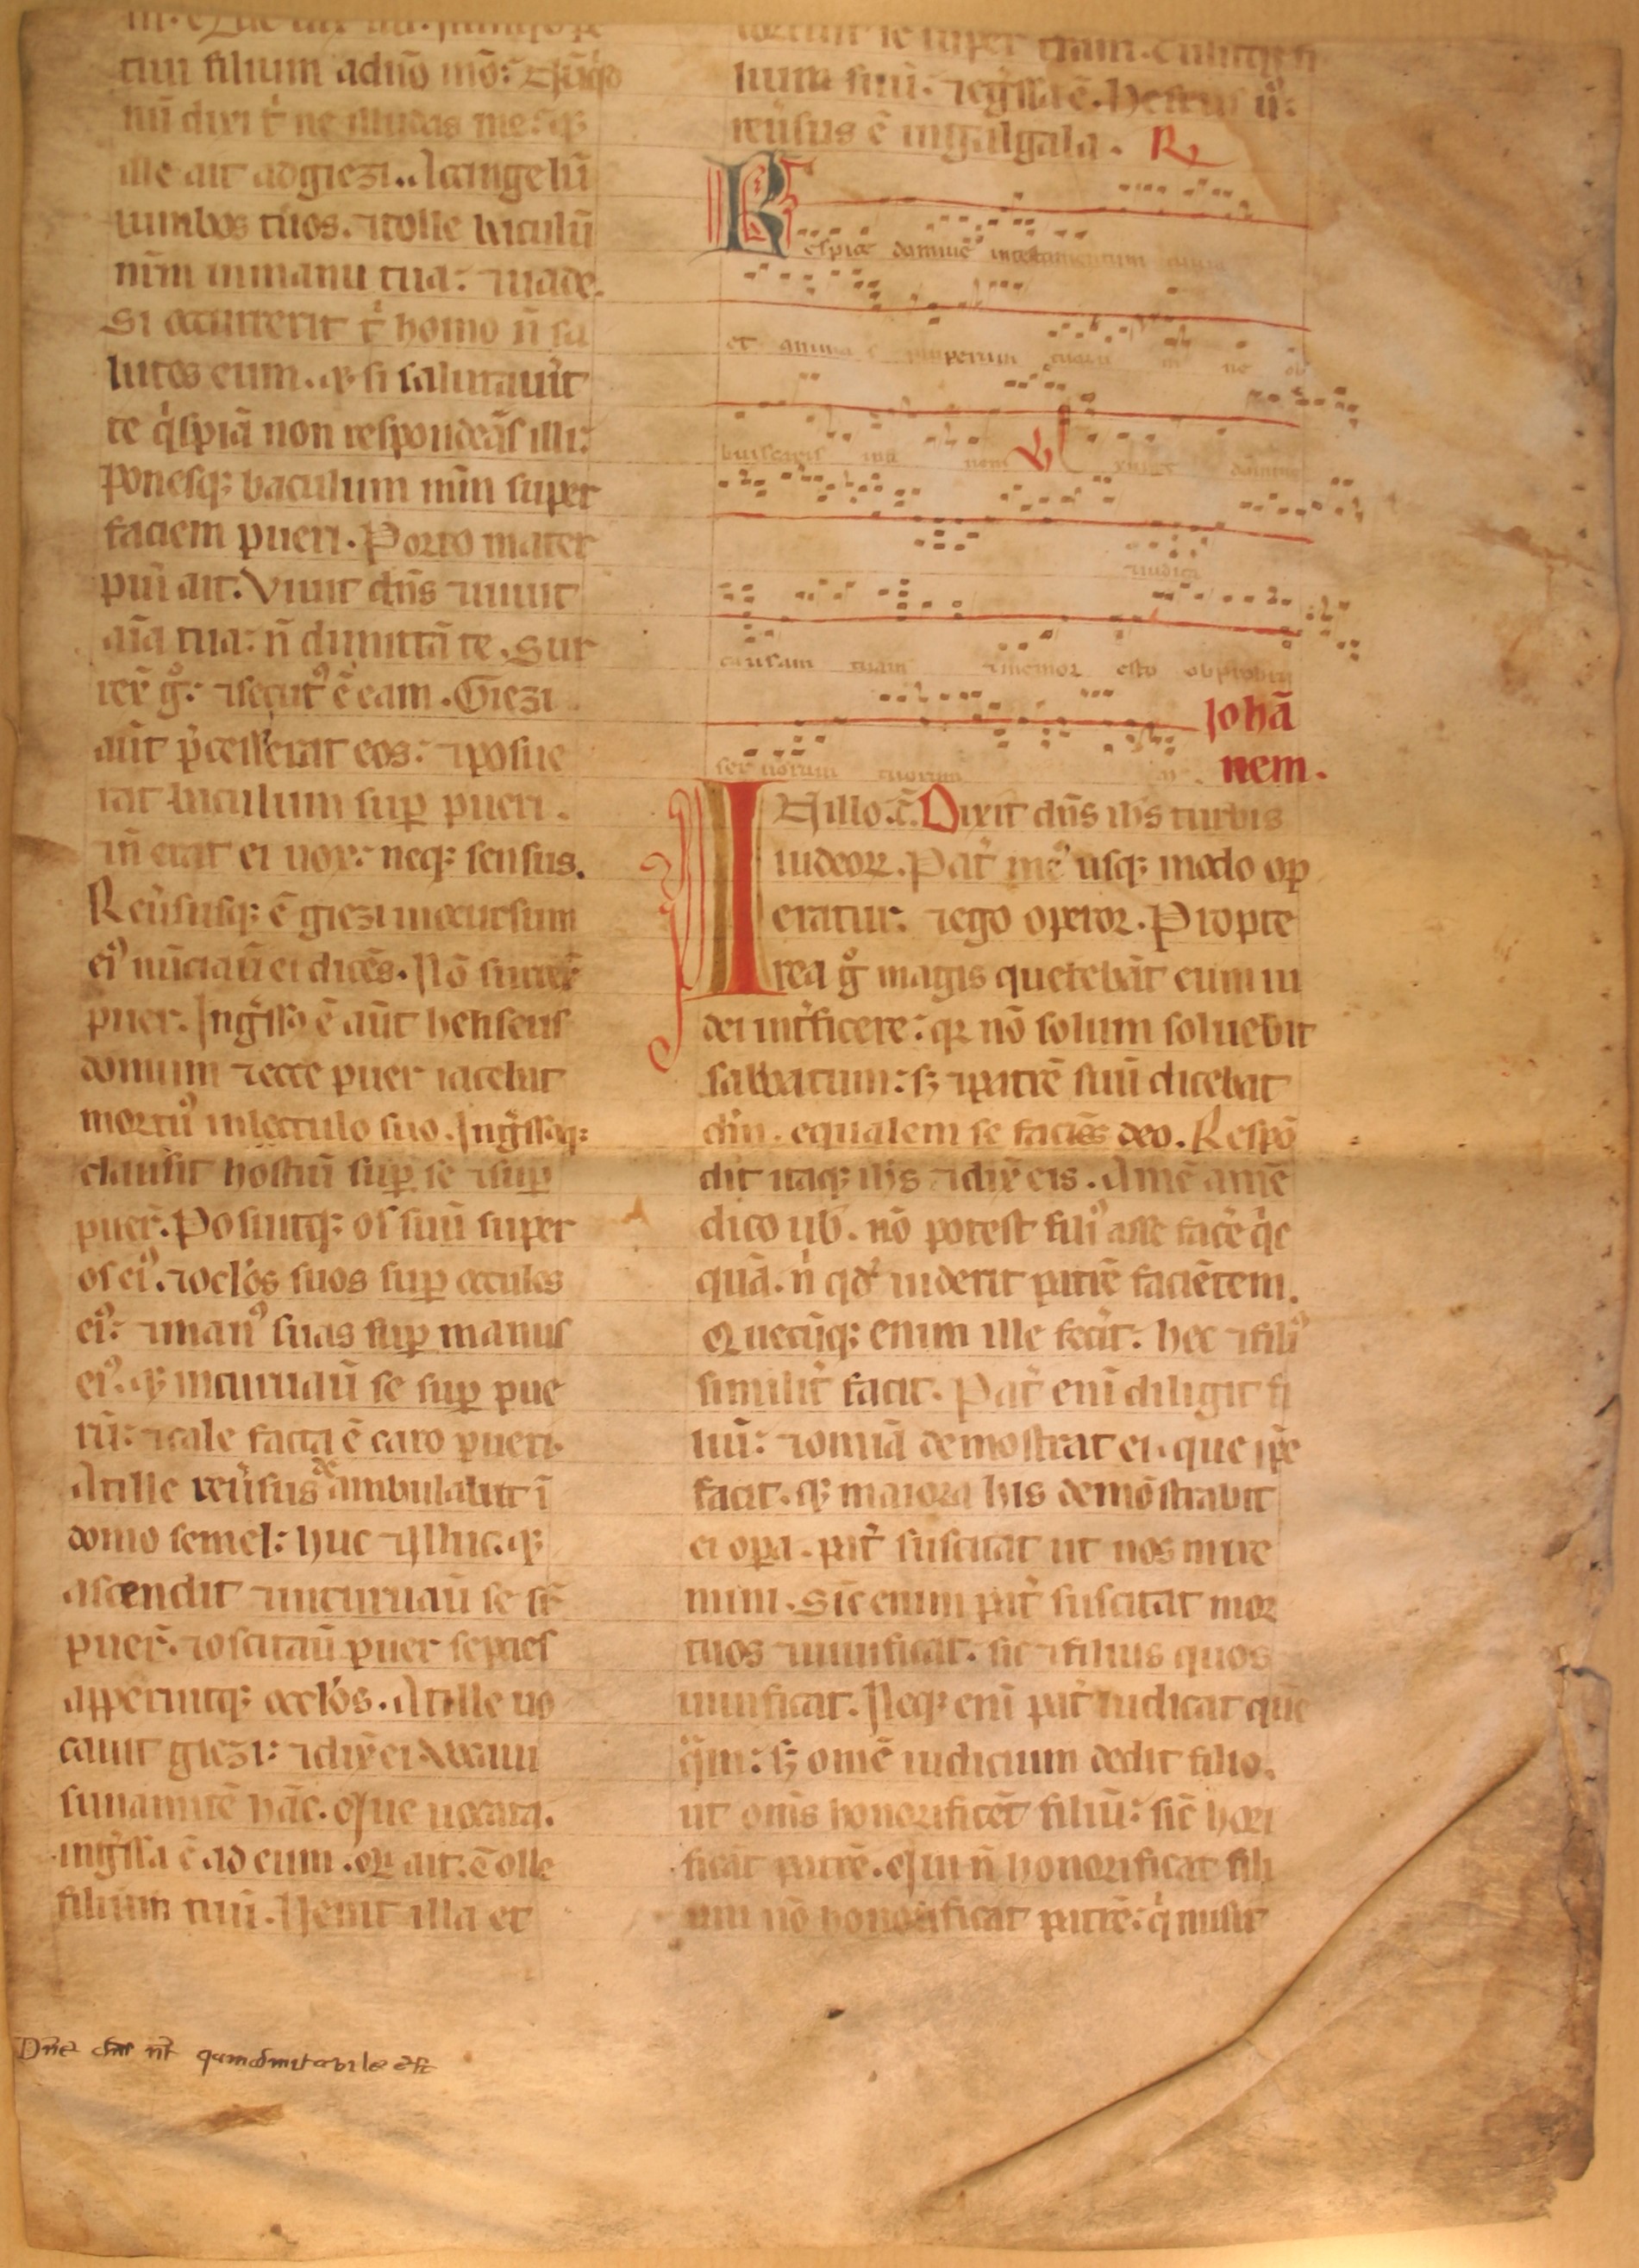 tuu filium a dn̄o mō:
nū dixi t̓ ne illudas me: q;
ille ait ad giezi. Accinge lū
lumbos tuos. ⁊ tolle baculū
mīm in manu tua: ⁊ uade.
Si occurrerit t̓ homo n̄ sa
lutes eum. ⁊ si salutauīt
te q̇spiā non respondeās illi:
ponesq; baculum mīm super
faciem pueri. Porro mater
pu̅i ait. Viuit dn̄s ⁊ uiuit
aīa tua: n̄ dimittā te. Sur
rex̄ g̊: ⁊ secut᾿ ē eam. Giezi
aūt p̄cesserat eos: ⁊ posue
rat baculum sup̱ pueri.
⁊ n̄ erat ei uox: neq; sensus.
Reūsusq; ē giezi in occursum
ei᾿ nūciaū ei dicēs. Nō surrex̄
puer. Ingssꝰ ē aūt heliseus
domum ⁊ ecce puer iacebat
mortuꝰ in lectulo suo. Ingssusq;
clausit hostiū sup̱ se ⁊ sup̱
puer̄. Posuitq; os suū super
os eiꝰ. ⁊ oclōs suos sup̱ oculos
eiꝰ: ⁊ manꝰ suas sup̱ manus
eiꝰ. ⁊ incuruaū se sup̱ pue
rū: ⁊ cale facta ē caro pueri.
At ille reūsus deambulabat ī
domo semel: huc ⁊ illuc. ⁊
ascendit ⁊ incuruaū se sr̄
puer̄. ⁊ oscitaū puer septies
apperuitq; oclōs. At ille uo
cauit giezi: ⁊ dix̄ ei. Voca m̄
sunamitē hāc. Que uocata.
ingssa ē ad eum. Qi ait. Tolle
filium tuū. Venit illa et
lium suū. ⁊ egssa ē. Heliseus ū:
reūsus ē in galgala. R
Respice domine in testamentum tuum
et animas pauperum tuorū ne ob
liuiscaris in finem V Exurge domine
⁊ iudica
causam tuam ⁊ memor esto obprobrii
seruorum tuorum
Iohā
nem.
In illo. t̄. Dixit dn̄s ihs turbis
iudeoꝝ. Pat̓ mēꝰ usq; modo op̱
eratur: ⁊ ego operor. Propte
rea g̊ magis querebāt eum iu
dei int̓ficere: q̄ nō solum soluebat
sabbatum: s; ⁊ patrē suū dicebat
dm̄. equalem se faciēs deo. Respō
dit itaq; ihs ⁊ dix̄ eis. Amē amē
dico uob̄. nō potest filiꝰ a se facē q̇c
quā. n̓ qd̓ uiderit patrē faciētem.
Quecūq; enim ille fec̄it: hec ⁊ filiꝰ
similit̓ facit. Pat̓ enī diligit fi
liū: ⁊ omīa demostrat ei. que ip̄e
facit. ⁊ maiora his demōstrabit
ei opa. pat̓ suscitat ut uos mire
mini. Sic̄ enim pat̓ suscitat mor
tuos ⁊ uiuificat. sic ⁊ filius quos
uiuificat. Neq; enī pat̓ iudicat quē
q̄m: s; omē iudicium dedit filio.
ut om̄s honorificēt filiū: sic̄ hori
ficāt patrē. Qui n̄ honorificat fili
um nō honorificat patrē: q̇ misit
Dn̄e dn̄s nr̄ quam admirabile est